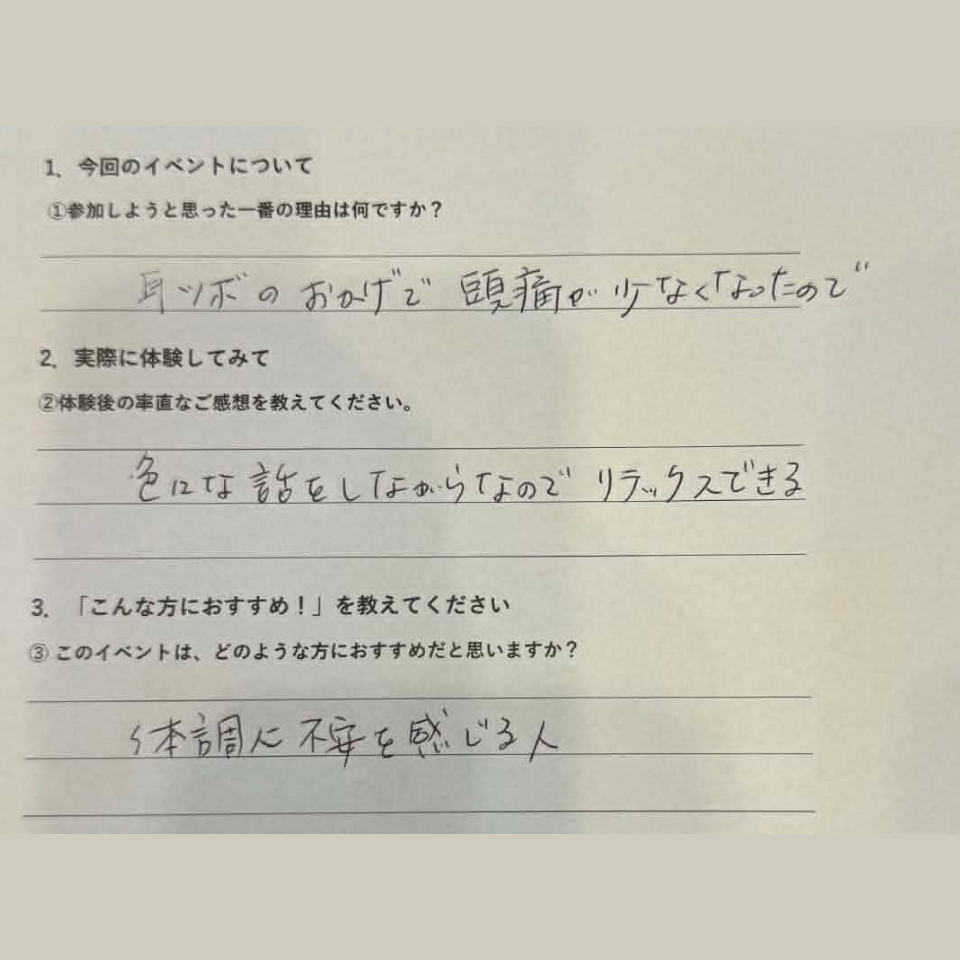 1. 今回のイベントについて
①参加しようと思った一番の理由は何ですか？
耳ツボのおかげで 頭痛が少なくなったので
2. 実際に体験してみて
②体験後の率直なご感想を教えてください。
色んな話をしながらなので リラックスできる
3. 「こんな方におすすめ！」を教えてください
③ このイベントは、どのような方におすすめだと思いますか？
体調に不安を感じる人